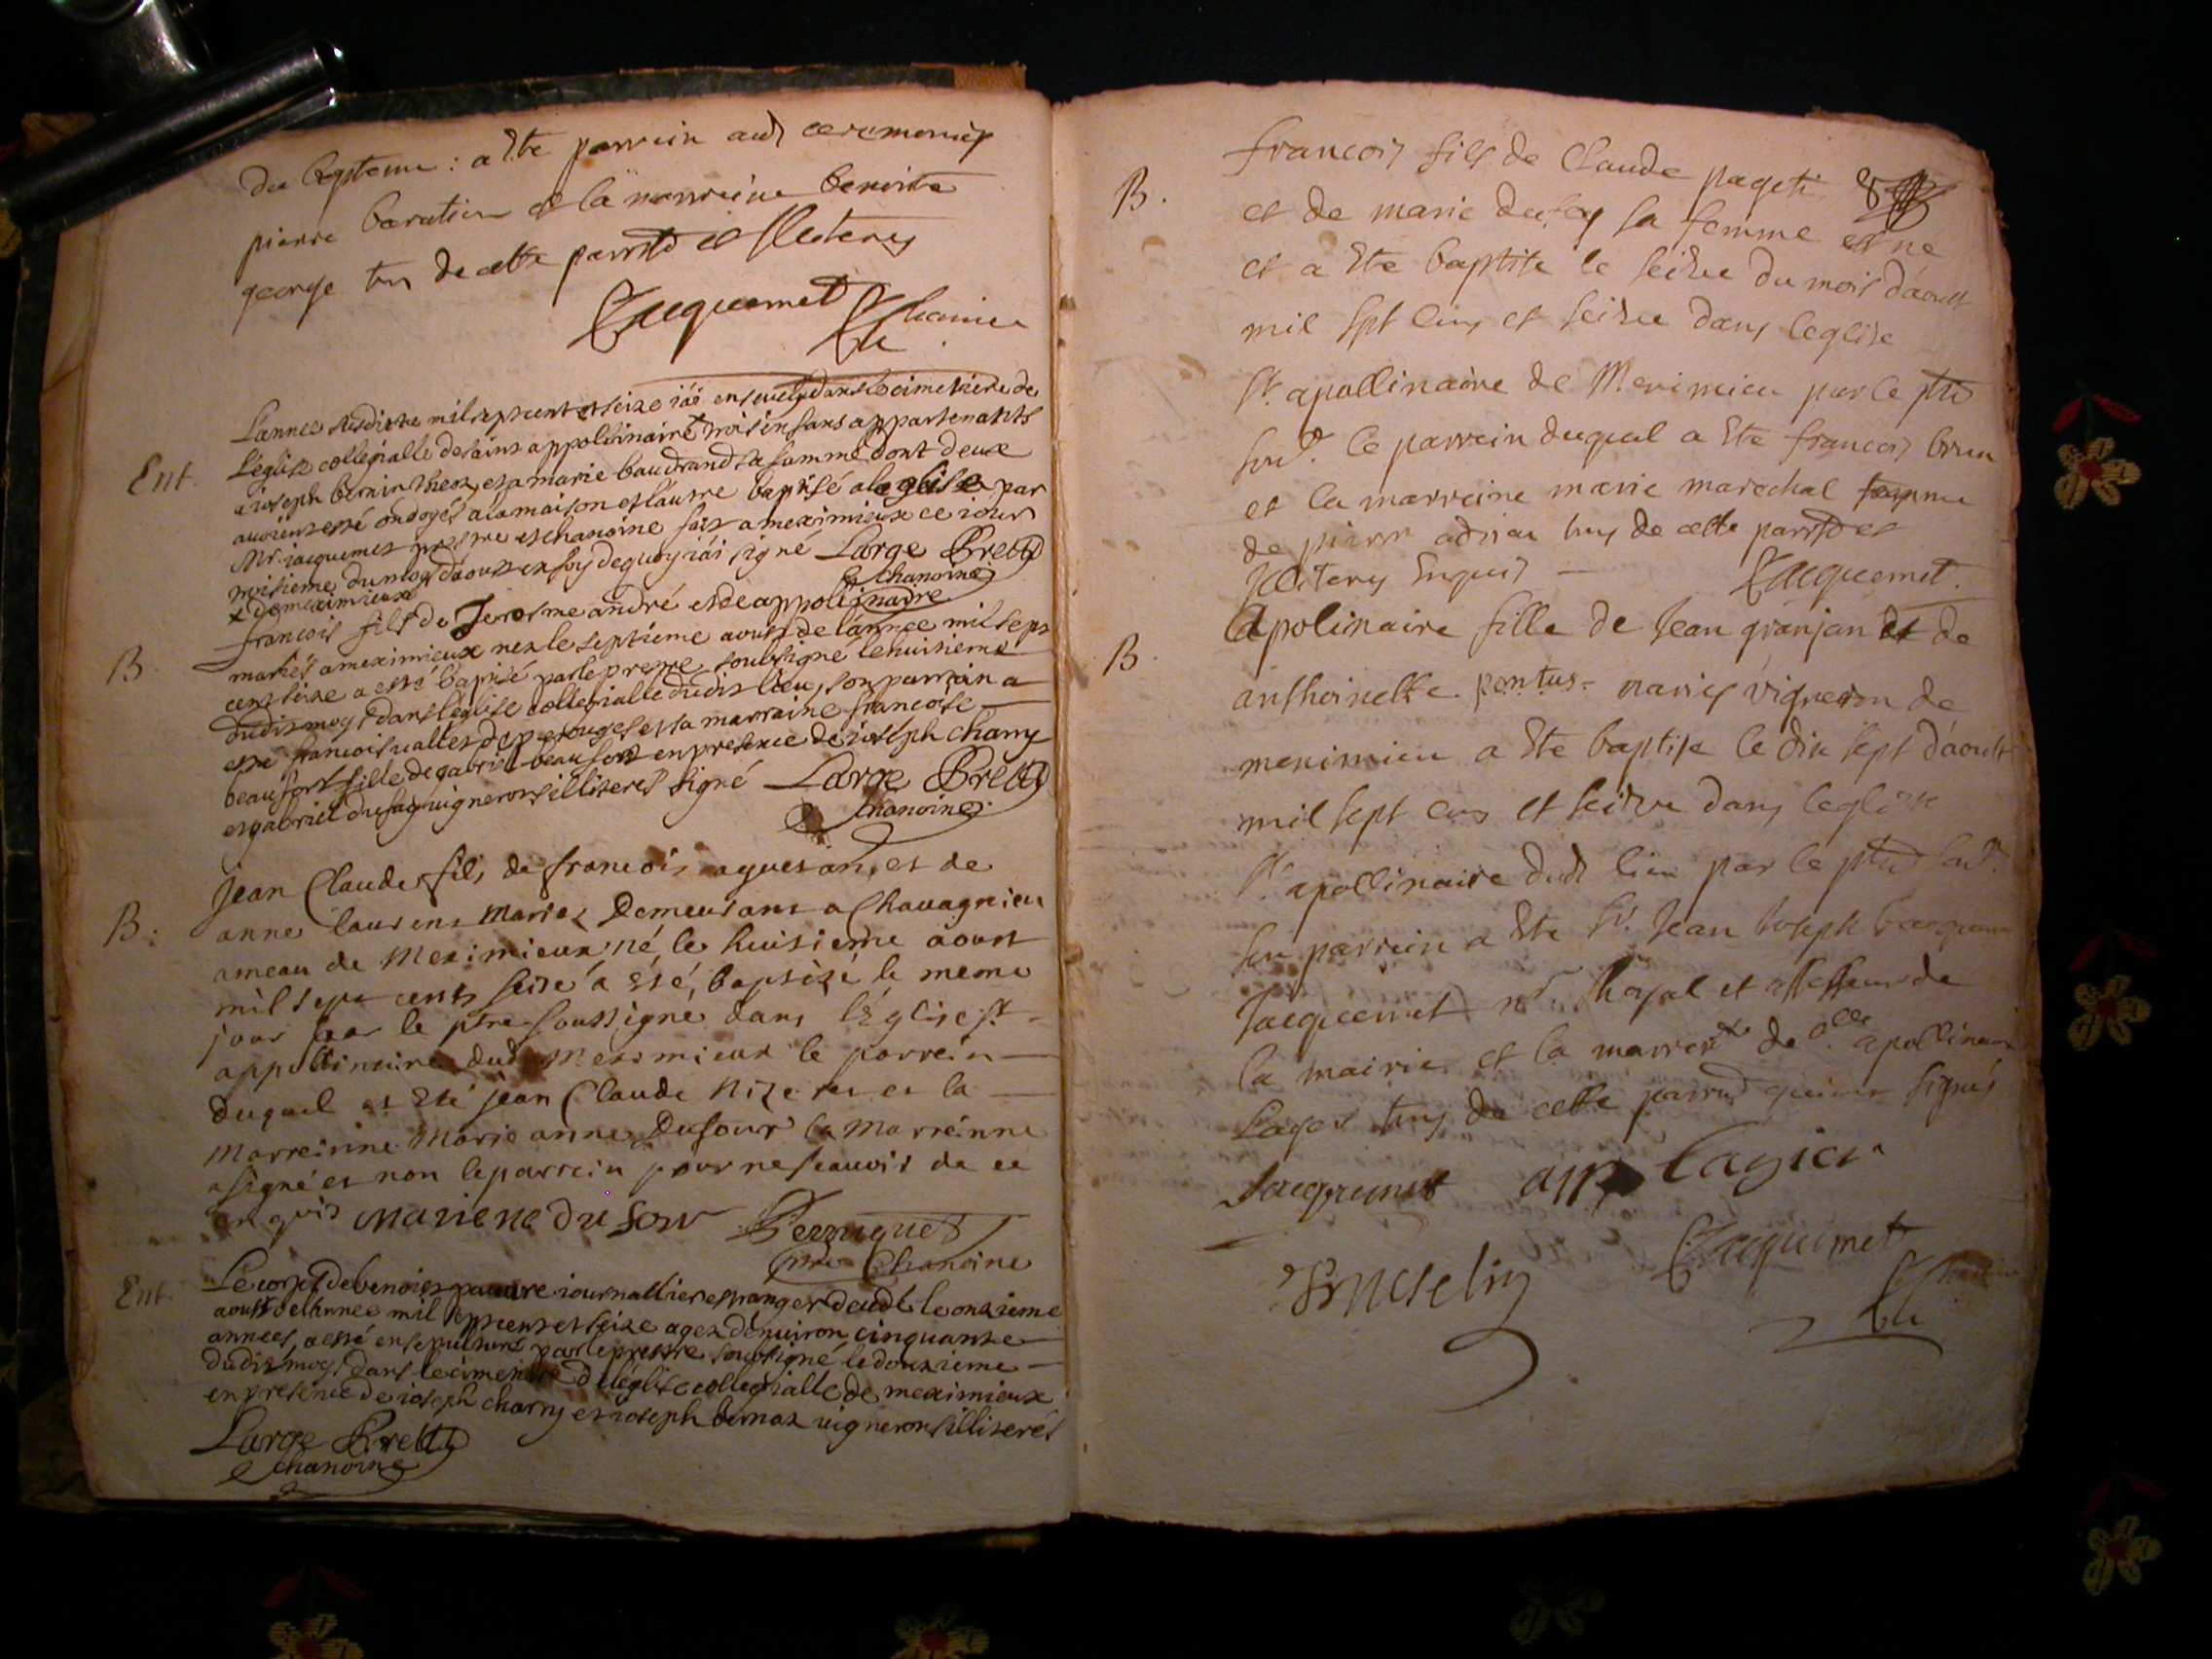 du bapteme : a ete parrein aud ceremonies
pierre baratier et la marreine benoite
george tous de cette parroisse illeterez
Jacquemet
Chanoine
L'annee susdite mil sept cent et seize iái enseuely dans le cimetiere de
L'église collegialle de saint appolinaire trois enfans appartenants
Ent. a ioseph bernin theox, et a marie baudrand sa famme dont deux
auoient esté ondoyés a la maison et l'autre baptisé a leglise par
Mr. iacquemet prestre et chanoine fait a meximieux ce iour
troisieme du moys d'aoust en foy de quoy iái signé Large Prebtre
chanoine
x de meximieux
francois fils de Jerosme andré et de appolinaire
B. mariés a meximieux nez le septieme aoust de l'annee mil sept
cent seize a esté baptisé par le prestre soubsigné le huitieme
dudit moys dans l'église collegialle dudit lieu, son parrain a
esté francois uallet de perouges et sa marraine francoise
beaufort fille de gabriel beaufort en presence de ioseph charny
et gabriel dufay uignerons illiterés signé Large Prebtre
chanoine
jean Claude fils de francois aguetan, et de
B: anne laurent mariez Demeurant a Chauagnieu
ameau de Meximieux, né, le huitieme aoust
mil sept cents seize a esté, baptizé le meme
jour par le ptre soussigne dans l'Église st
appollinaire dud Meximieux le parrein
duquel at Eté jean Claude Nizeret et la
Marreinne Marie anne Dufour la Marreinne
a signé et non le parrein pour ne scauoir de ce
enquis mariene du four Perruquet
ptre Chanoine
Ent. Le corps de benoist pauure iournallier estranger decedé le onzieme
aoust de l'annee mil sept cent et seize agez d'enuiron cinquante
annees, a esté ensepulturé par le prestre soubsigné le douzieme
dudit moys dans le cimetiere de léglise collegialle de meximieux
en presence de ioseph charny et ioseph bernax uignerons illiterés
Large Prebtre
chanoine
francois fils de Claude pageti
B. et de marie dufay sa femme est né
et a ete baptise le seizie du mois d'aoust
mil sept cens et seizie dans l'eglise
St. apollinaire de Meximieu par le ptre
sous. le parrein duquel a ete francois brun
et la marreine marie marechal femme
de pierre adrian tous de cette parroisse
Illiterez Enquis — Jacquemet.
Apolinaire fille de Jean granjan et de
B. anthoinette pontus mariez vigneron de
meximieu a ete baptise le dix sept d'aoust
mil sept cens et seizie dans leglise
St. apollinaire dud lieu par le ptre sous.
son parrein a ete Sr. Jean Joseph
Jacquemet nre Royal et assesseur de
la mairie et la marreine dlle apollinaire
Lager tous de cette parroisse qui ont signés
Jacquemet app Lagier
Jacquemet
Chanoine